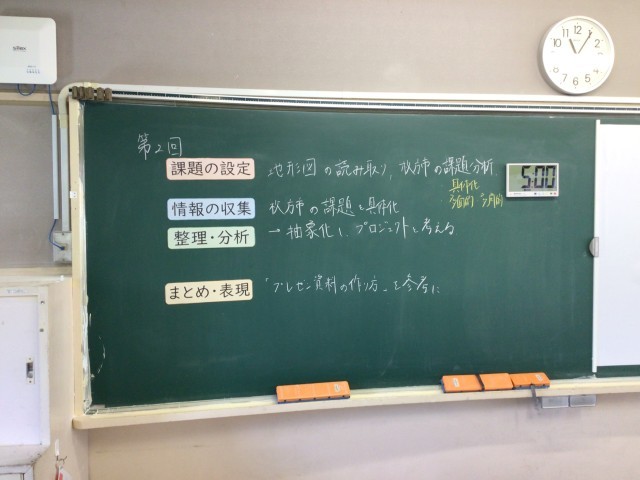 第2回
課題の設定 地形図の読み取り, 枚方市の課題分析
具体化
5:00
情報の収集 枚方市の課題を具体化
整理・分析 → 抽象化し、プロジェクトを考える
まとめ・表現 「プレゼン資料の作り方」を参考に
12 1 2 3 4 5 6 7 8 9 10 11